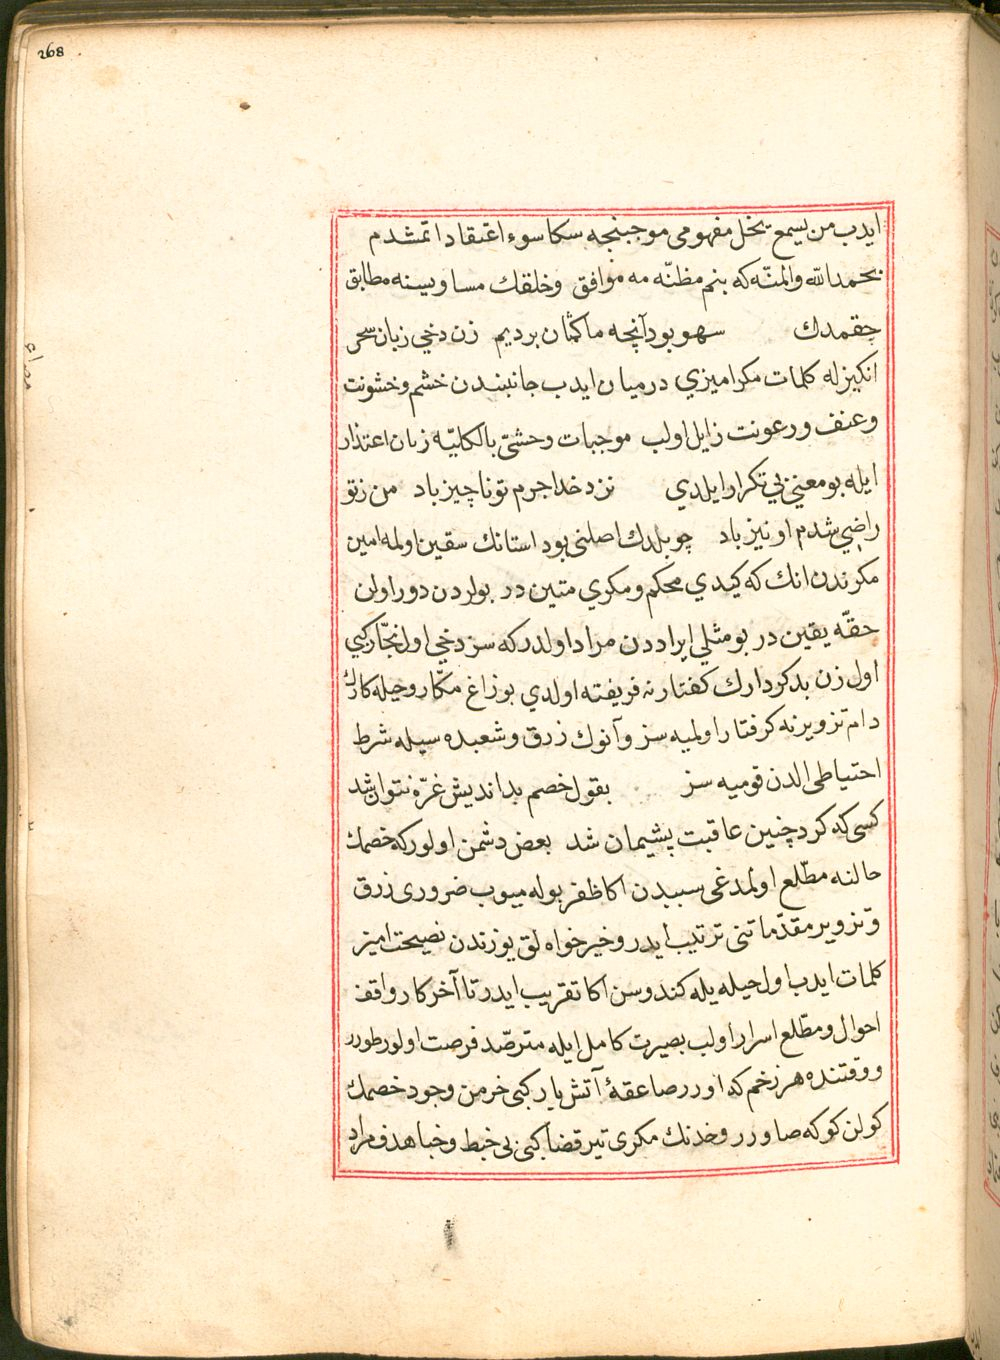 268
ایدب من یسمع یخل مفهومی موجبنجه سکا سوء اعتقاد اتمشدم
بحمد الله والمنّه که بنم مظنّه مه موافق وخلقك مساویسنه مطابق
چقمدك سهو بود آنچه ما کمان بردیم زن دخي زبان سحر
انکیز له کلمات مکرامیزي درمیان ایدب جانبندن خشم و خشونت
وعنف ورعونت زایل اولب موجبات وحشتی بالکلیّه زبان اعتذار
ایله بو معنی یی تکرار ایلدي نزد خدا جرم تو ناچیز باد من ز تو
راضي شدم او نیز باد چو بلدك اصلنی بو داستانك سقین اولمه امین
مکرندن انك که کیدي محکم ومکري متین در بولردن دور اولن
حقّه یقین در بو مثلي ایراددن مراد اولدر که سز دخي اول نجّار کبي
اول زن بدکردارك کفتارنه فریفته اولدي بو زاغ مکّار وحیله کارك
دام تزویرنه کرفتار اولمیه سز وآنوك زرق وشعبده سیله شرط
احتیاطی الدن قومیه سز بقول خصم بداندیش غرّه نتوان شد
کسی که کرد چنین عاقبت پشیمان شد بعض دشمن اولور که خصمك
حالنه مطّلع اولمدغی سببدن اکا ظفر بوله میوب ضروری زرق
وتزویر مقدّماتنی ترتیب ایدر وخیر خواه لق یوزندن نصیحت امیز
کلمات ایدب اول حیله یله کندوسن اکا تقریب ایدر تا آخر کار واقف
احوال ومطّلع اسرار اولب بصیرت کامل ایله مترصّد فرصت اولور طورر
ووقتنده هر زخم که اورر صاعقهٔ آتش بار کبی خرمن وجود خصمك
کولن کوکه صاورر وخدنك مکری تیر قضا کبی بی خبط وخبا هدف مراد